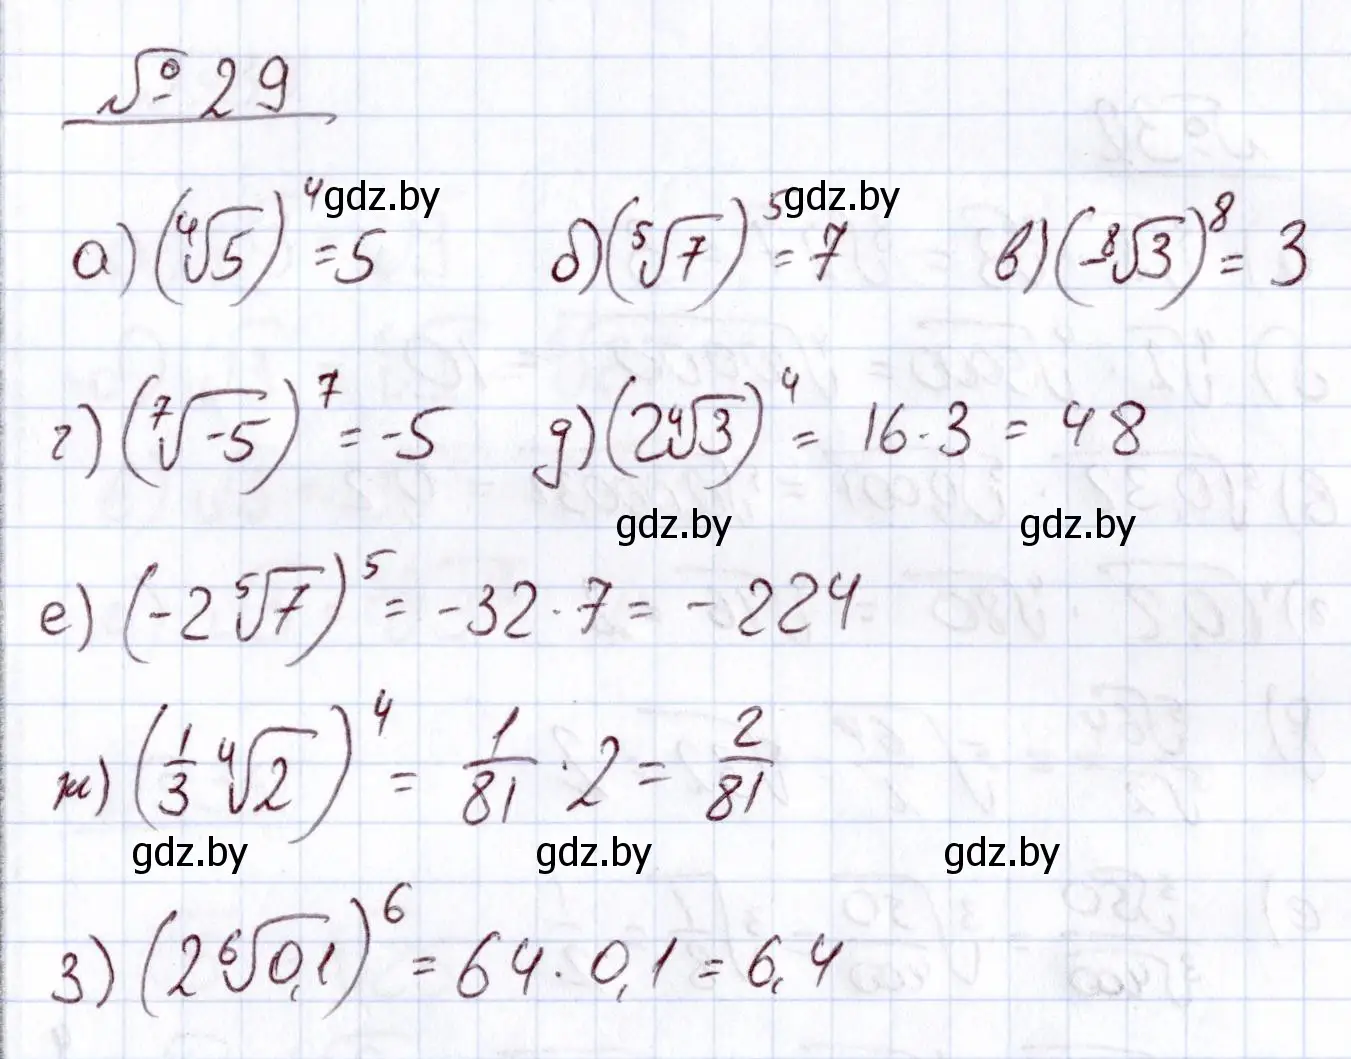 № 29
а) (⁴√5)⁴ = 5 б) (⁵√7)⁵ = 7 в) (-⁸√3)⁸ = 3
gdz.by gdz.by
г) (⁷√-5)⁷ = -5 д) (2⁴√3)⁴ = 16·3 = 48
gdz.by gdz.by
е) (-2⁵√7)⁵ = -32·7 = -224
ж) (1/3 ⁴√2)⁴ = 1/81 · 2 = 2/81
gdz.by gdz.by gdz.by
з) (2⁶√0,1)⁶ = 64·0,1 = 6,4